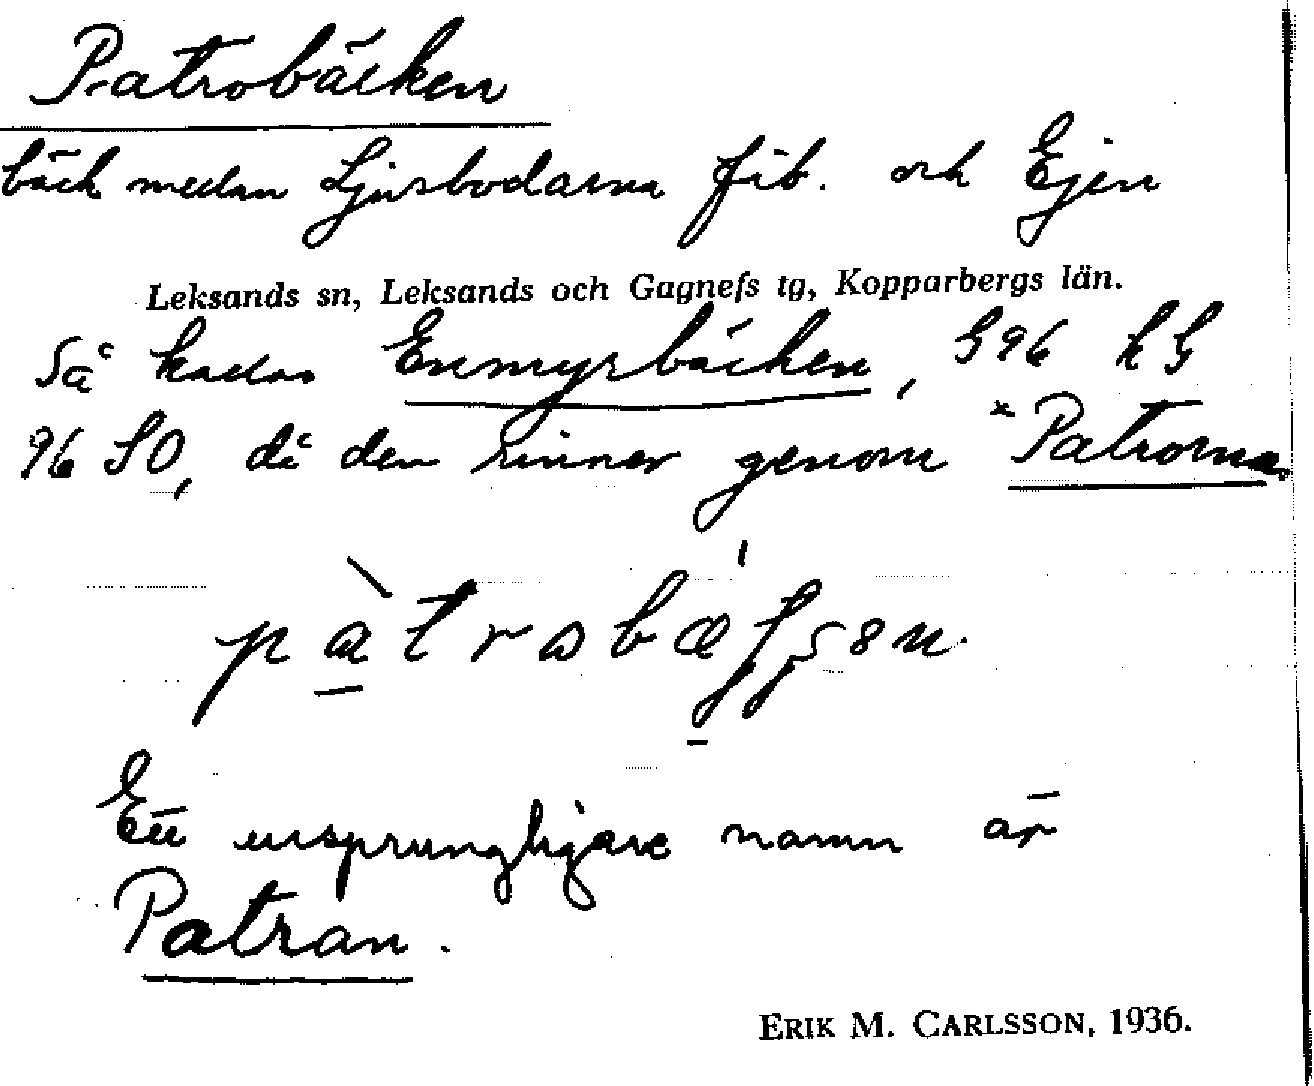 Patrobäcken
bäck medan Ljusbodarna fäb. och Ejen
Leksands sn, Leksands och Gagnefs tg, Kopparbergs län.
Så kallas Enmyrbäcken, G96 hG
96 SO, då den rinner genom *Patrorna.
Ett ursprungligare namn är
Patran.
ERIK M. CARLSSON, 1936.